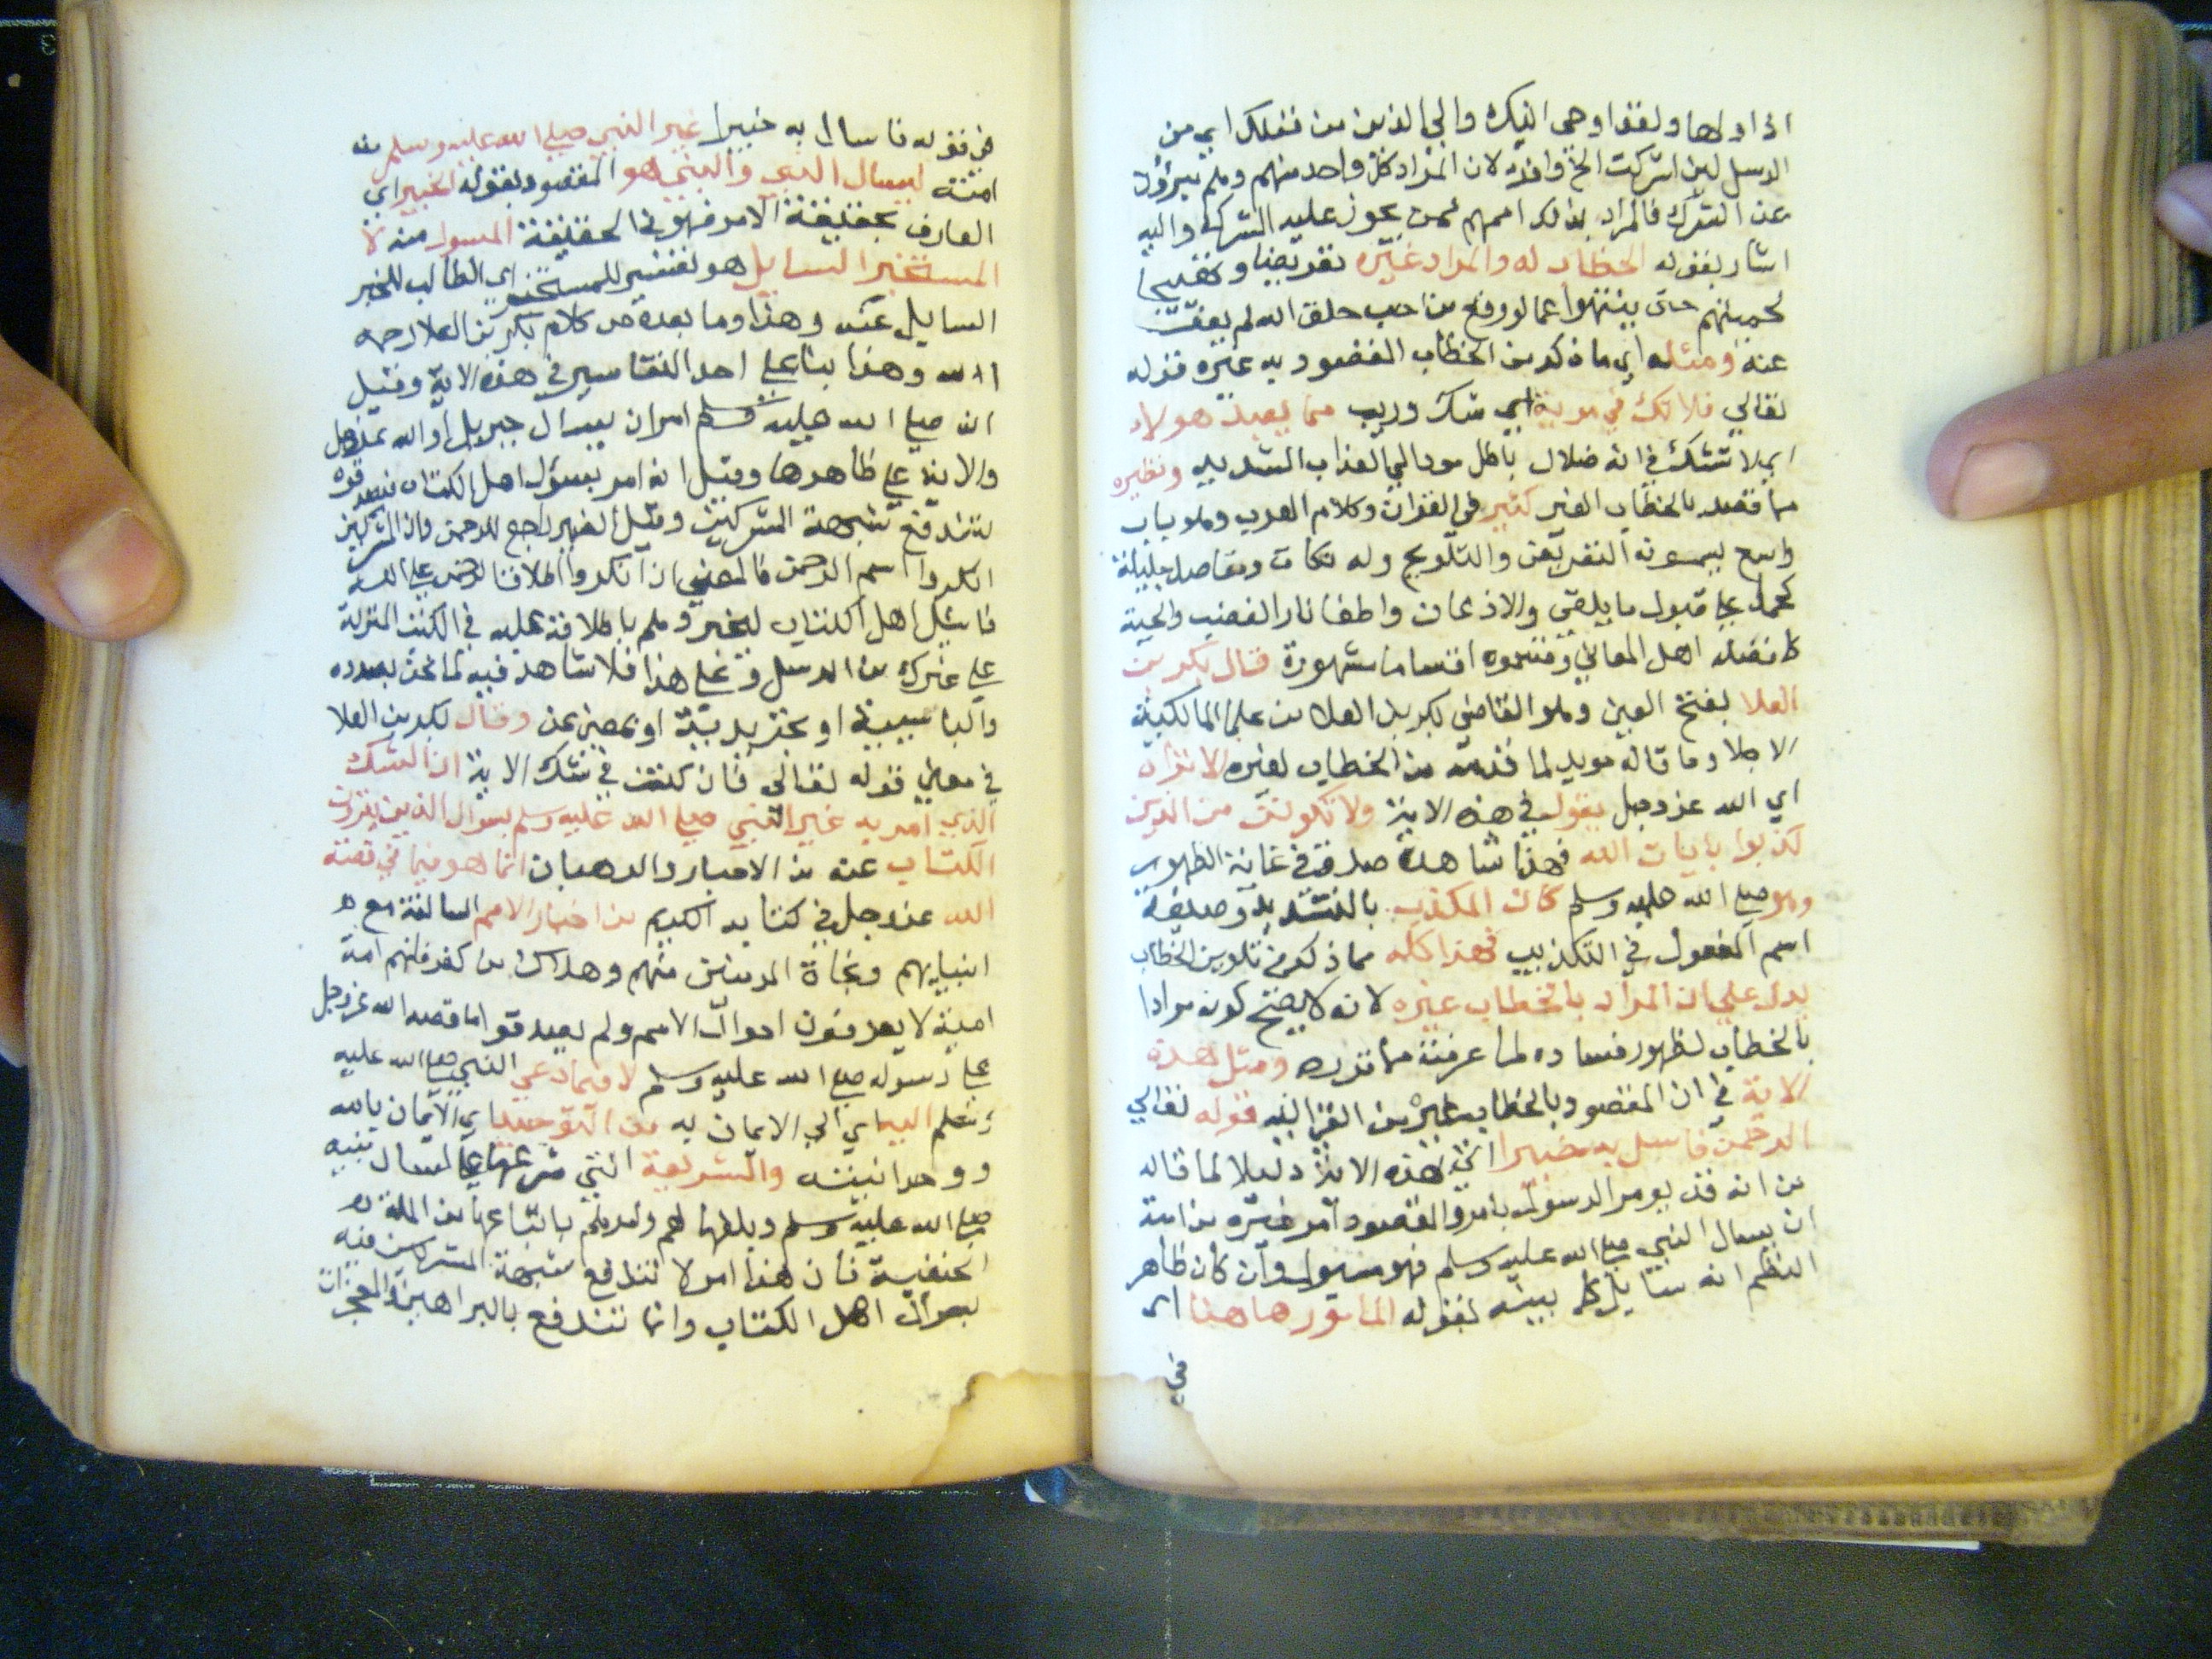 اذ اولها ولقد اوحى اليك والى الذين من قبلك اي من
الرسل لين اشركت الخ وافرد لان المراد كل واحد منهم وهم مبرؤن
عن الشرك فالمراد بذلك اممهم ممن يجوز عليه الشرك واليه
اشار بقوله الخطاب له والمراد غيره تعريضا وتهييجا
لحميتهم حتى ينتهوا عما لو وقع من احب خلق الله لم يعف
عنه ومثله اي ما ذكر من الخطاب المقصود به غيره قوله
تعالي فلا تك في مرية اي شك وريب مما يعبد هولاء
اي لا تشك في انه ضلال باطل مود الي العذاب الشديد ونظيره
مما قصد بالخطاب الغير كثير في القران وكلام العرب وهو باب
واسع يسمونه التعريض والتلويح وله نكات ومقاصد جليلة
كحمله علي قبول ما يلقى والاذعان واطفا نار الغضب والحمية
كما فصله اهل المعاني وقسموه اقساما مشهورة قال بكر بن
العلا بفتح العين وهو القاضي بكر بن العلا من علما المالكية
الاجلا وما قاله مويد لما قدمه من الخطاب لغيره الا تراه
اي الله عز وجل يقول في هذه الاية ولا تكونن من الذين
كذبوا بايات الله فهذا شاهد صدق في غاية الظهور
وهو صلي الله عليه وسلم كان المكذب بالتشديد وصيغة
اسم المفعول في التكذيب فهذا كله مما ذكر في تلوين الخطاب
يدل علي ان المراد بالخطاب غيره لانه لا يصح كونه مرادا
بالخطاب لظهور فساده لما عرفته مما قرره ومثل هذه
الاية في ان المقصود بالخطاب غير من القي اليه قوله تعالي
الرحمن فاسل به خبيرا اتي بهذه الاية دليلا لما قاله
من انه قد يومر الرسول بامر والمقصود امر غيره من امته
ان يسال النبي صلي الله عليه وسلم فهو مسول وان كان ظاهر
النظم انه سايل كما بينه بقوله المامور هاهنا اي
في
في قوله فاسال به خبيرا غير النبي صلي الله عليه وسلم من
امته ليسال النبي والنبي هو المقصود بقوله الخبير اي
العارف بحقيقة الامر فهو في الحقيقة المسول منه لا
المستخبر السايل هو تفسير للمستخبر اي الطالب للخبر
السايل عنه وهذا وما بعده من كلام بكر بن العلا رحمه
الله وهذا بنا علي احد التفاسير في هذه الاية وقيل
انه صلي الله عليه وسلم امر ان يسال جبريل او الله عز وجل
والاية علي ظاهرها وقيل انه امر بسؤل اهل الكتاب
لتندفع شبهة المشركين وقيل الضمير راجع للرحمن وان المشركين
انكروا اسم الرحمن فالمعني ان انكروا اطلاق الرحمن علي الله
فاسئل اهل الكتاب ليخبروهم باطلاقه عليه في الكتب المنزلة
علي غيرك من الرسل وعلي هذا فلا شاهد فيه لما نحن بصدده
والبا سببية او تجريدية او بمعني عن وقال بكر بن العلا
في معاني قوله تعالي فان كنت في شك الاية ان الشك
الذي امر به غير النبي صلي الله عليه وسلم بسوال الذين يقرون
الكتاب عنه من الاحبار والرهبان انما هو فيما في قصه
الله عز وجل في كتابه الكريم من اخبار الامم السالفة مع
انبيايهم ونجاة المومنين منهم وهلاك من كفر فانهم امة
امية لا يعرفون احوال الامم ولم يصدقوا ما قصه الله عز وجل
علي رسوله صلي الله عليه وسلم لا فيما دعي النبي صلي الله عليه
وسلم اليه اي الي الايمان به من التوحيد اي الايمان بالله
ووحدانيته والشريعة التي شرعها علي لسان نبيه
صلي الله عليه وسلم وبلغها لهم وامرهم باتباعها من الملة
الحنفية فان هذا امر لا تندفع شبهة المشركين فيه
بسوال اهل الكتاب وانما تندفع بالبراهين والمعجزات